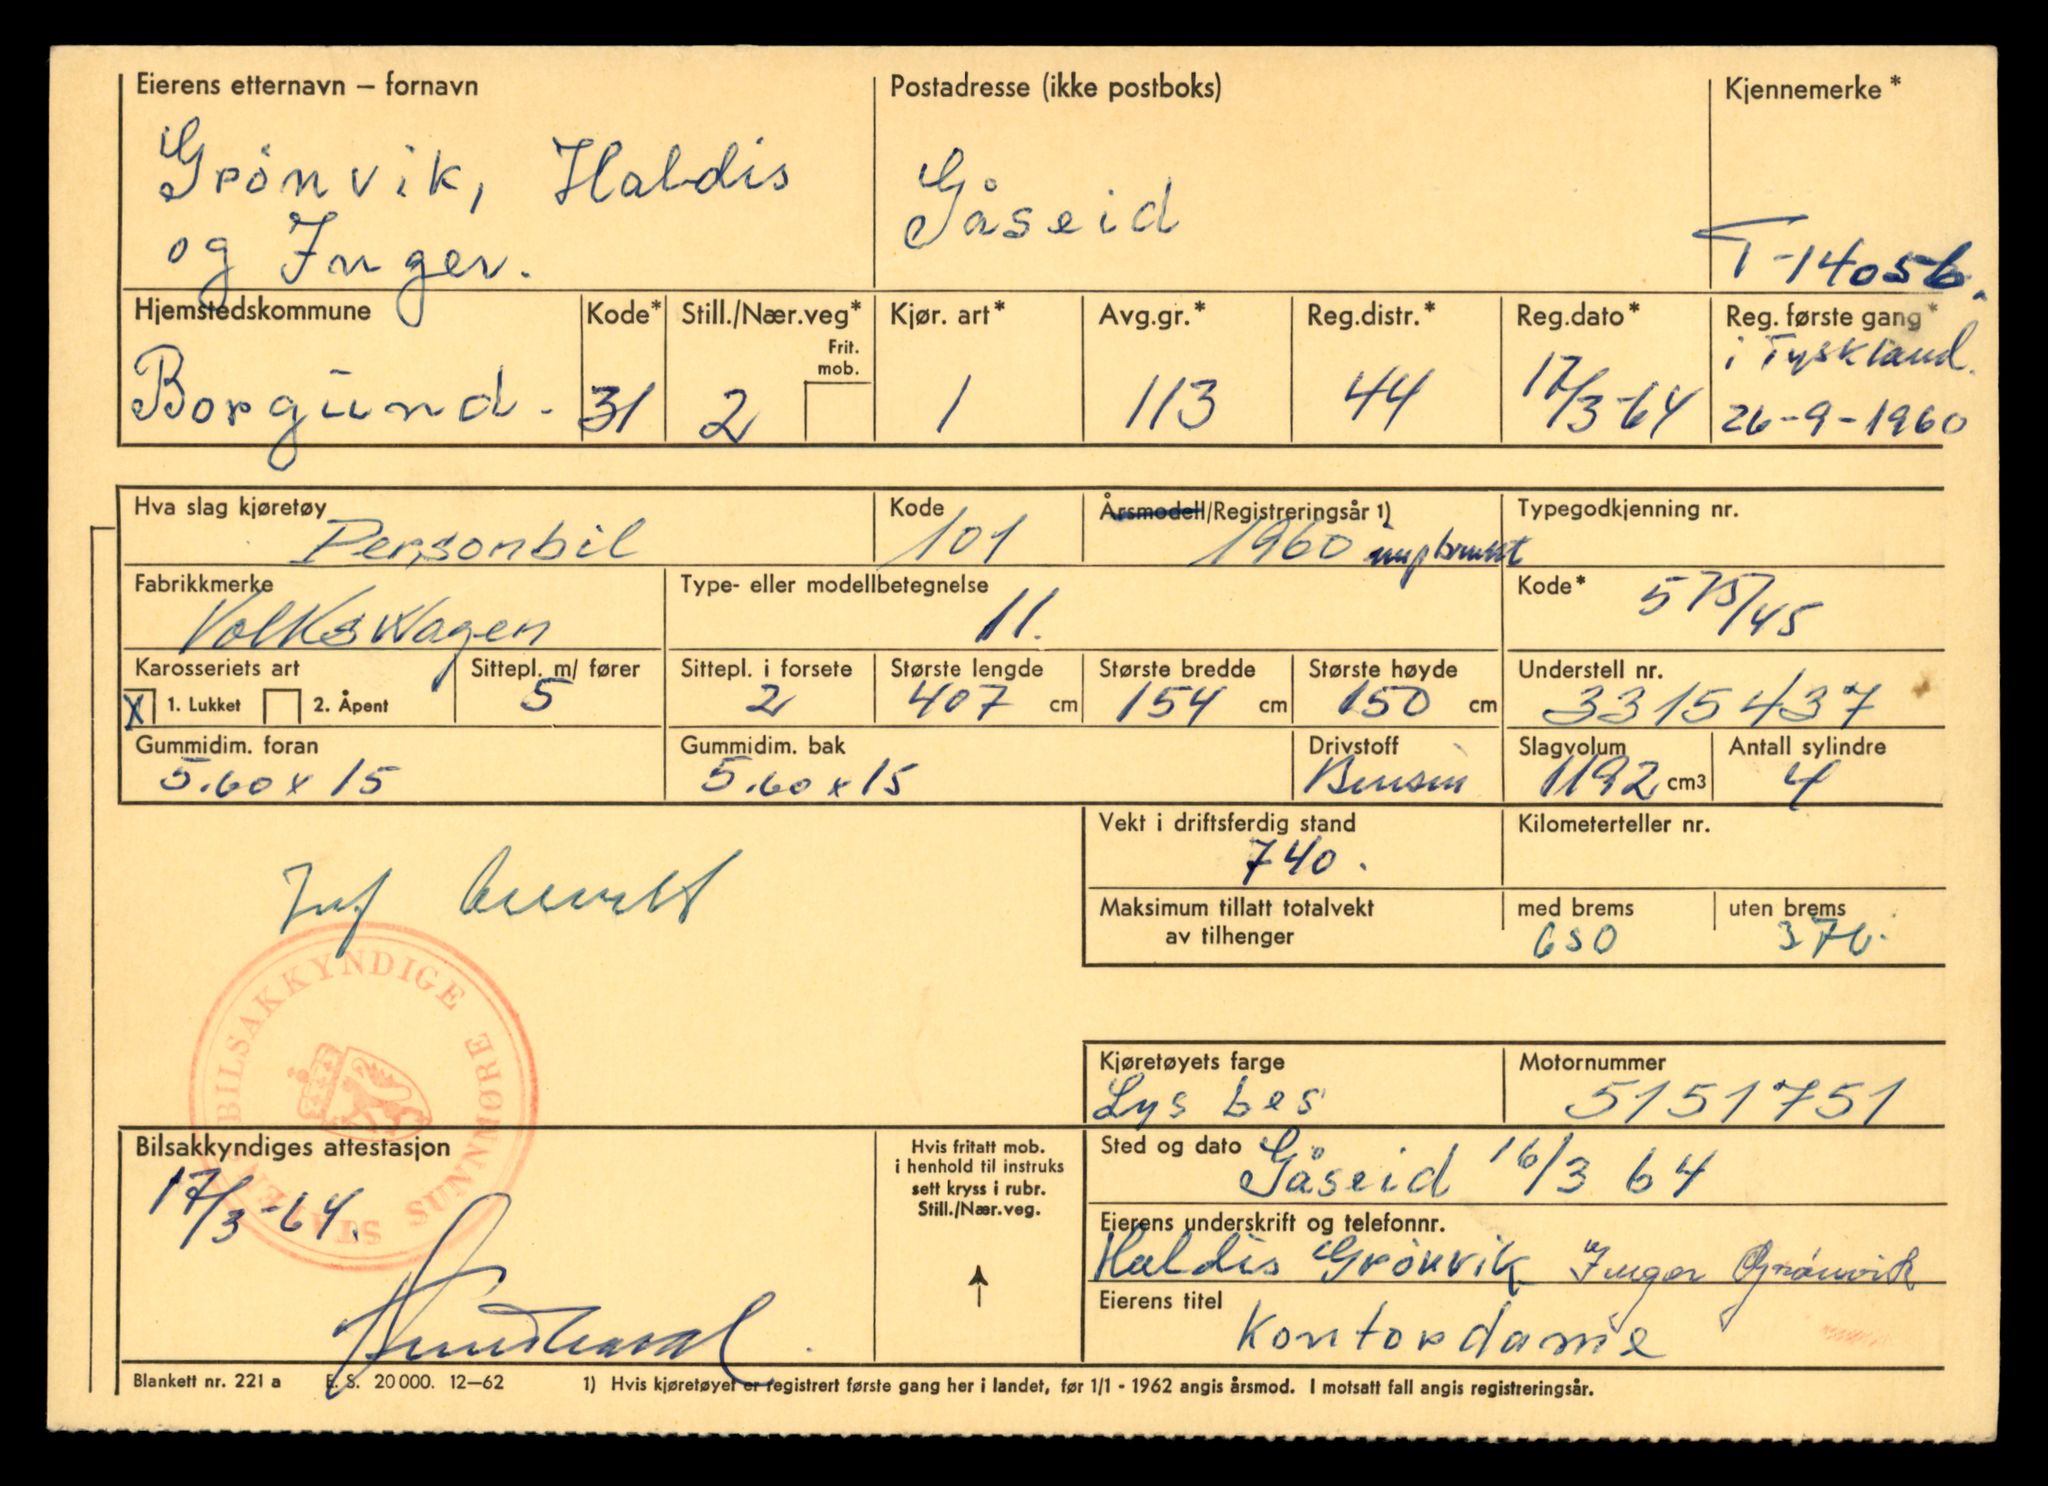 Eierens etternavn – fornavn
Grönvik, Haldis
og Inger.
Postadresse (ikke postboks)
Gåseid
Kjennemerke*
T-14056.
Hjemstedskommune
Borgund.
Kode*
31
Still./Nær.veg*
Frit.
mob.
2
Kjør. art*
1
Avg.gr.*
113
Reg.distr.*
44
Reg.dato*
17/3-64
Reg. første gang*
i Tyskland.
26-9-1960
Hva slag kjøretøy
Personbil
Kode
101
Årsmodell/Registreringsår 1)
1960 imp brukt
Typegodkjenning nr.
Fabrikkmerke
Volkswagen
Type- eller modellbetegnelse
11.
Kode*
575/45
Karosseriets art
X 1. Lukket 2. Åpent
Sittepl. m/ fører
5
Sittepl. i forsete
2
Største lengde
407 cm
Største bredde
154 cm
Største høyde
150 cm
Understell nr.
3315437
Gummidim. foran
5.60 x 15
Gummidim. bak
5.60 x 15
Drivstoff
Bensin
Slagvolum
1192 cm3
Antall sylindre
4
Vekt i driftsferdig stand
740.
Kilometerteller nr.
Maksimum tillatt totalvekt
av tilhenger
med brems
650
uten brems
370.
Imp brukt
STATENS BILSAKKYNDIGE SUNNMØRE
Kjøretøyets farge
Lys bes
Motornummer
5151751
Bilsakkyndiges attestasjon
17/3-64.
Hvis fritatt mob.
i henhold til instruks
sett kryss i rubr.
Still./Nær.veg.
Sted og dato
Gåseid 16/3 64
Eierens underskrift og telefonnr.
Haldis Grönvik Inger Grönvik
Eierens titel
Kontordame
Blankett nr. 221 a E. S. 20 000. 12—62
1) Hvis kjøretøyet er registrert første gang her i landet, før 1/1 - 1962 angis årsmod. I motsatt fall angis registreringsår.